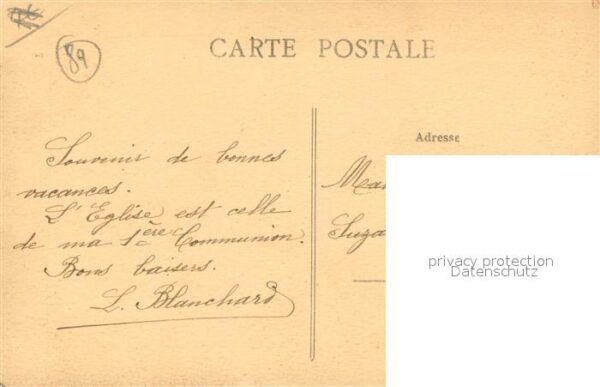 89
CARTE POSTALE
Adresse
Souvenir de bonnes
vacances.
L'Eglise est celle
de ma 1ère Communion.
Bons baisers.
L. Blanchard
Ma
Suza
privacy protection
Datenschutz